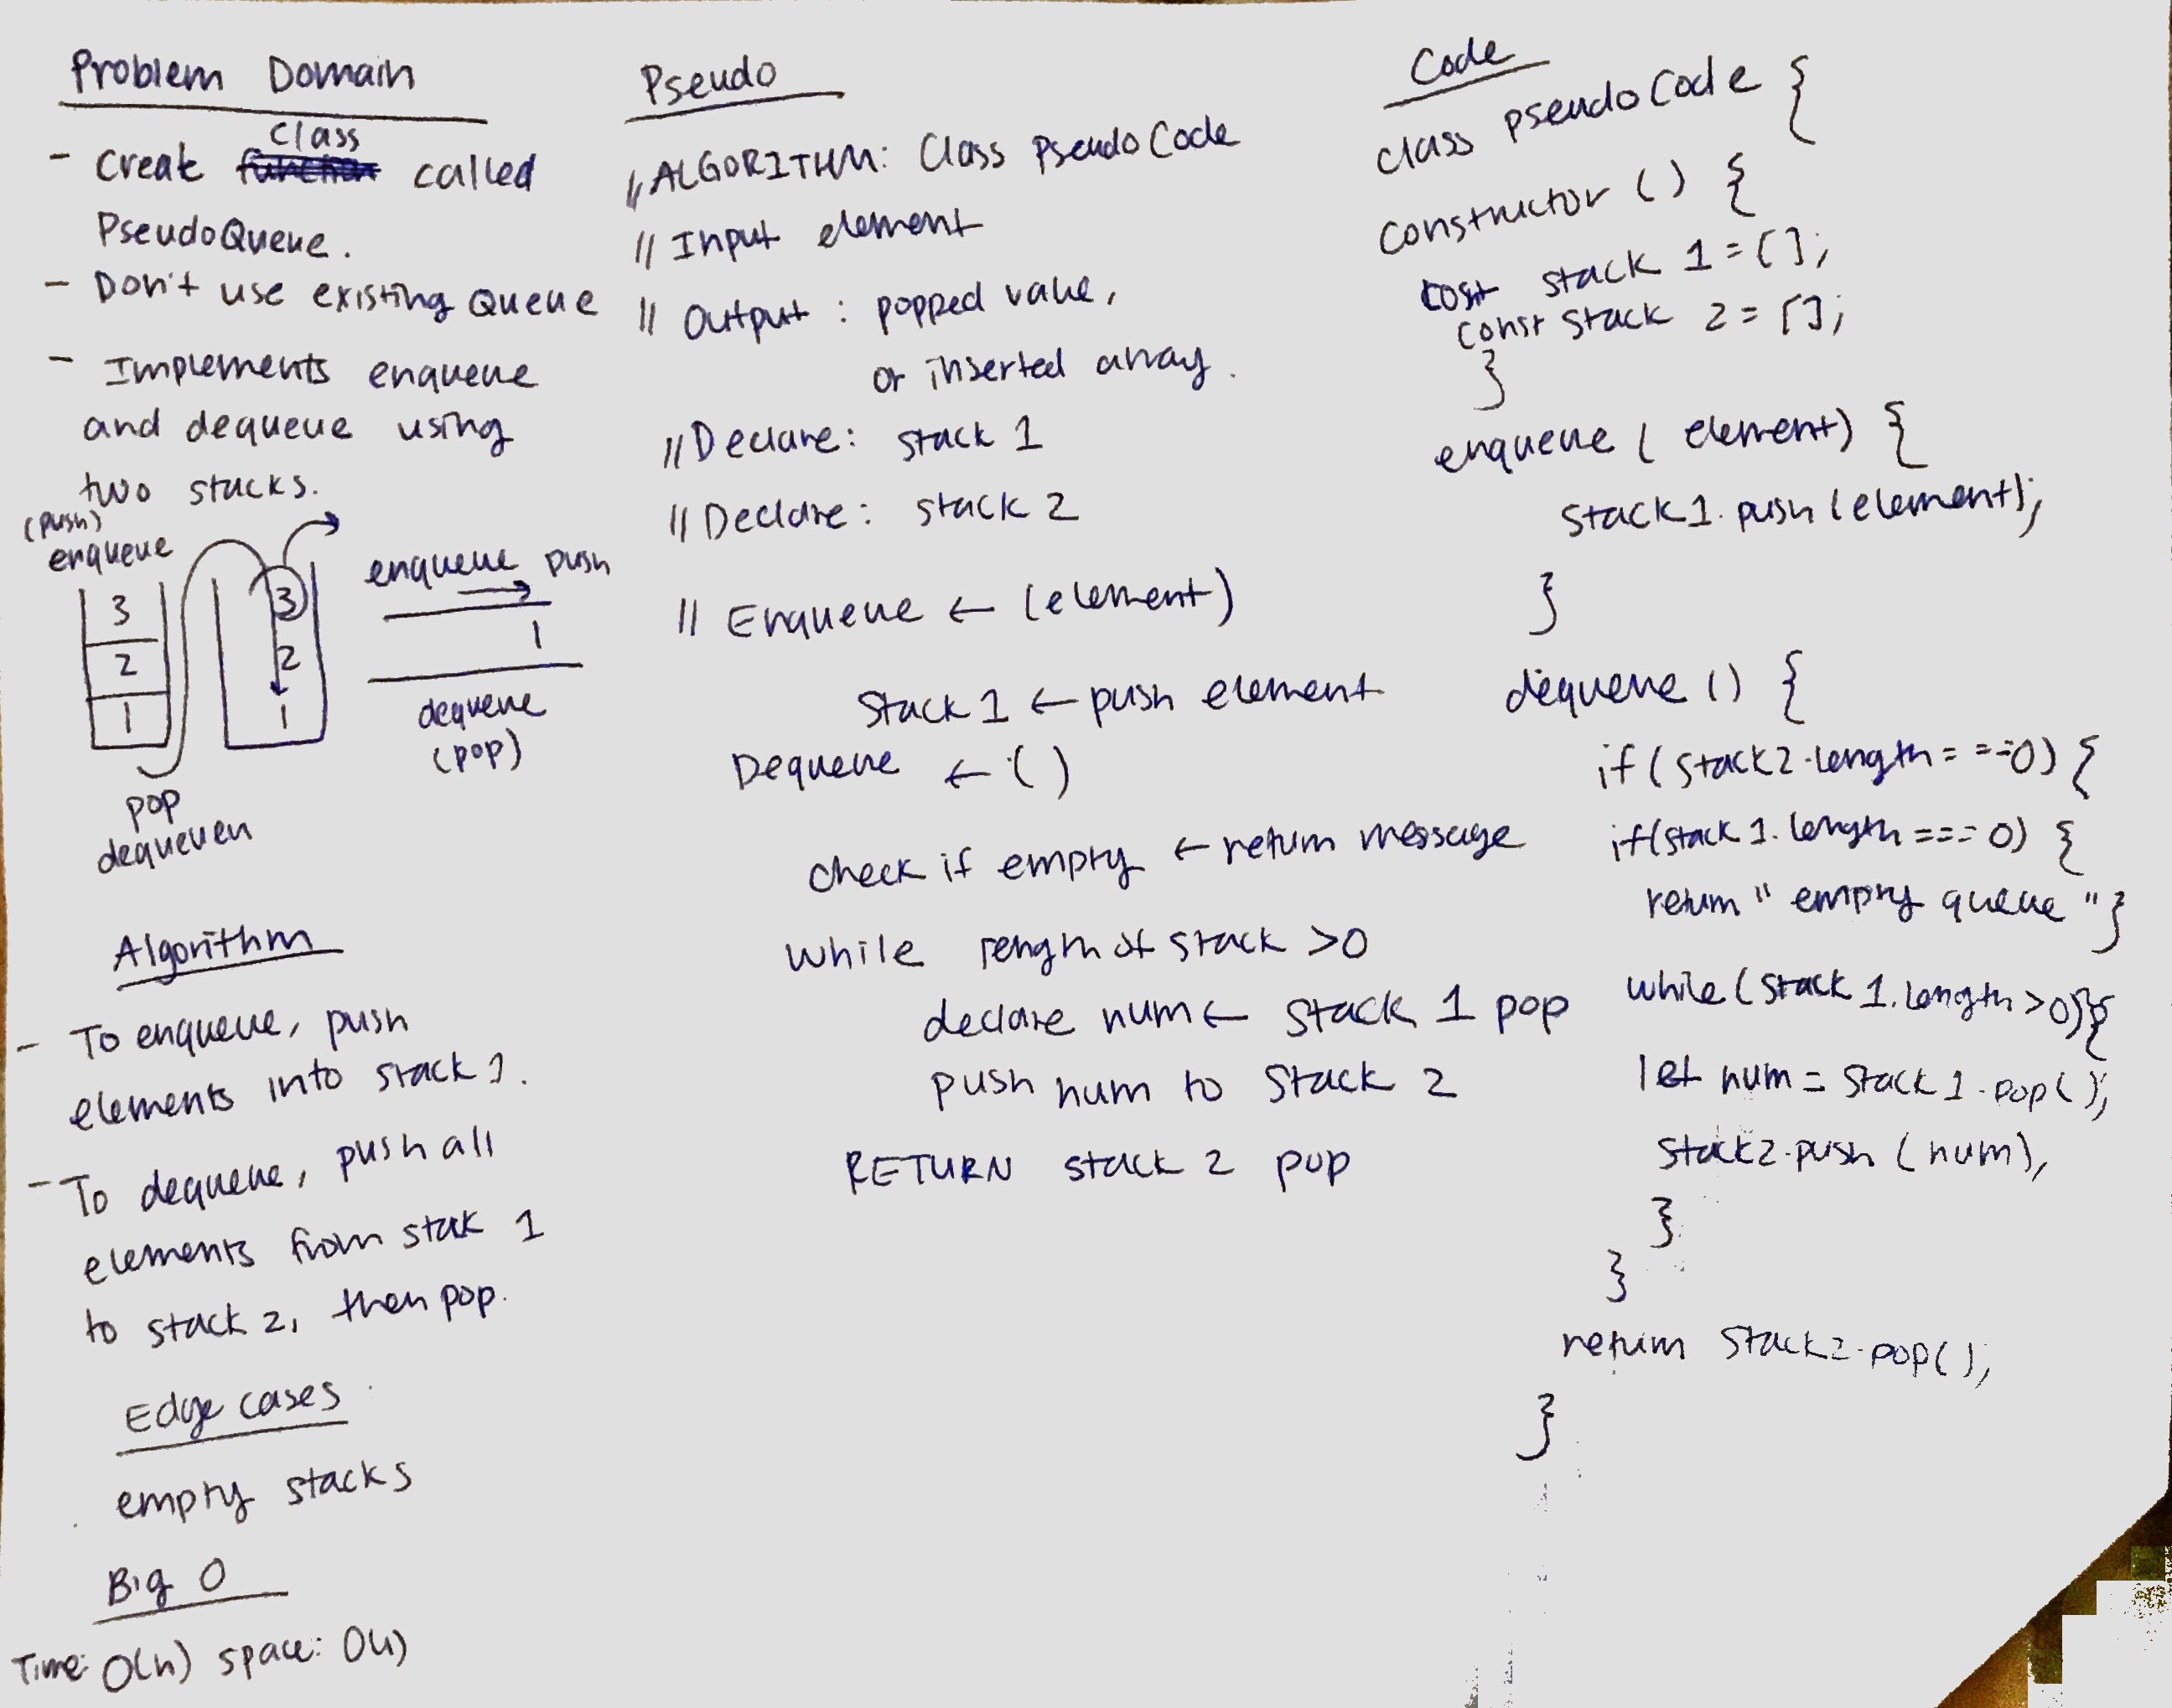 Problem Domain
- Create Class called
PseudoQueue.
- Don't use existing Queue
- Implements enqueue
and dequeue using
two stacks.
(push)
enqueue
3
2
1
pop
dequeuen
3
2
1
enqueue push
1
dequeue
(pop)
Algorithm
- To enqueue, push
elements into stack 1.
- To dequeue, push all
elements from stak 1
to stack 2, then pop.
Edge cases
empty stacks
Big O
Time: O(n) space: O(1)
Pseudo
// ALGORITHM: Class PseudoCode
// Input element
// Output : popped value,
or inserted array.
// Declare: stack 1
// Declare: stack 2
// Enqueue ← (element)
Stack 1 ← push element
Dequeue ← ()
check if empty ← return message
while length of stack >0
declare num ← stack 1 pop
push num to stack 2
RETURN stack 2 pop
Code
class pseudoCode {
constructor () {
const stack 1 = [];
const stack 2 = [];
}
enqueue ( element) {
stack1.push (element);
}
dequeue () {
if (stack2.length === 0) {
if (stack 1.length === 0) {
return " empty queue " }
while (stack 1.length >0){
let num = stack 1.pop();
stack2.push (num);
}
}
return stack2.pop();
}